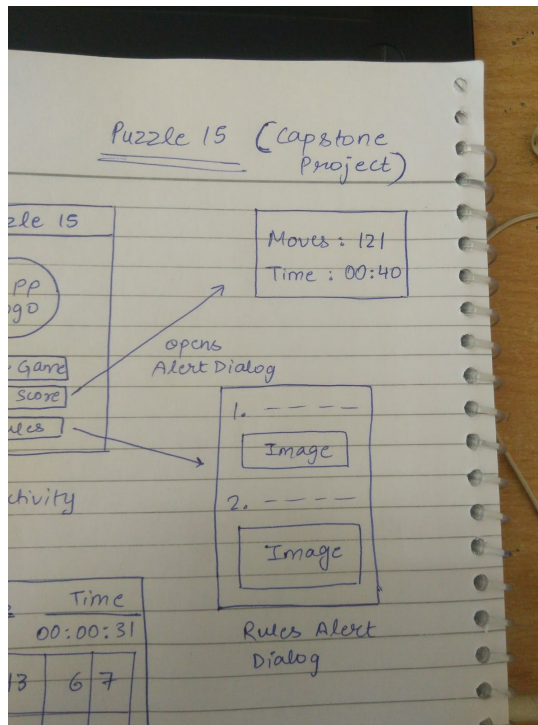 Puzzle 15 (Capstone
Project)
zle 15
pp
ogo
Game
Score
ules
ctivity
Moves : 121
Time : 00:40
opens
Alert Dialog
1. ----
Image
2. ----
Image
Rules Alert
Dialog
Time
00:00:31
13 6 7